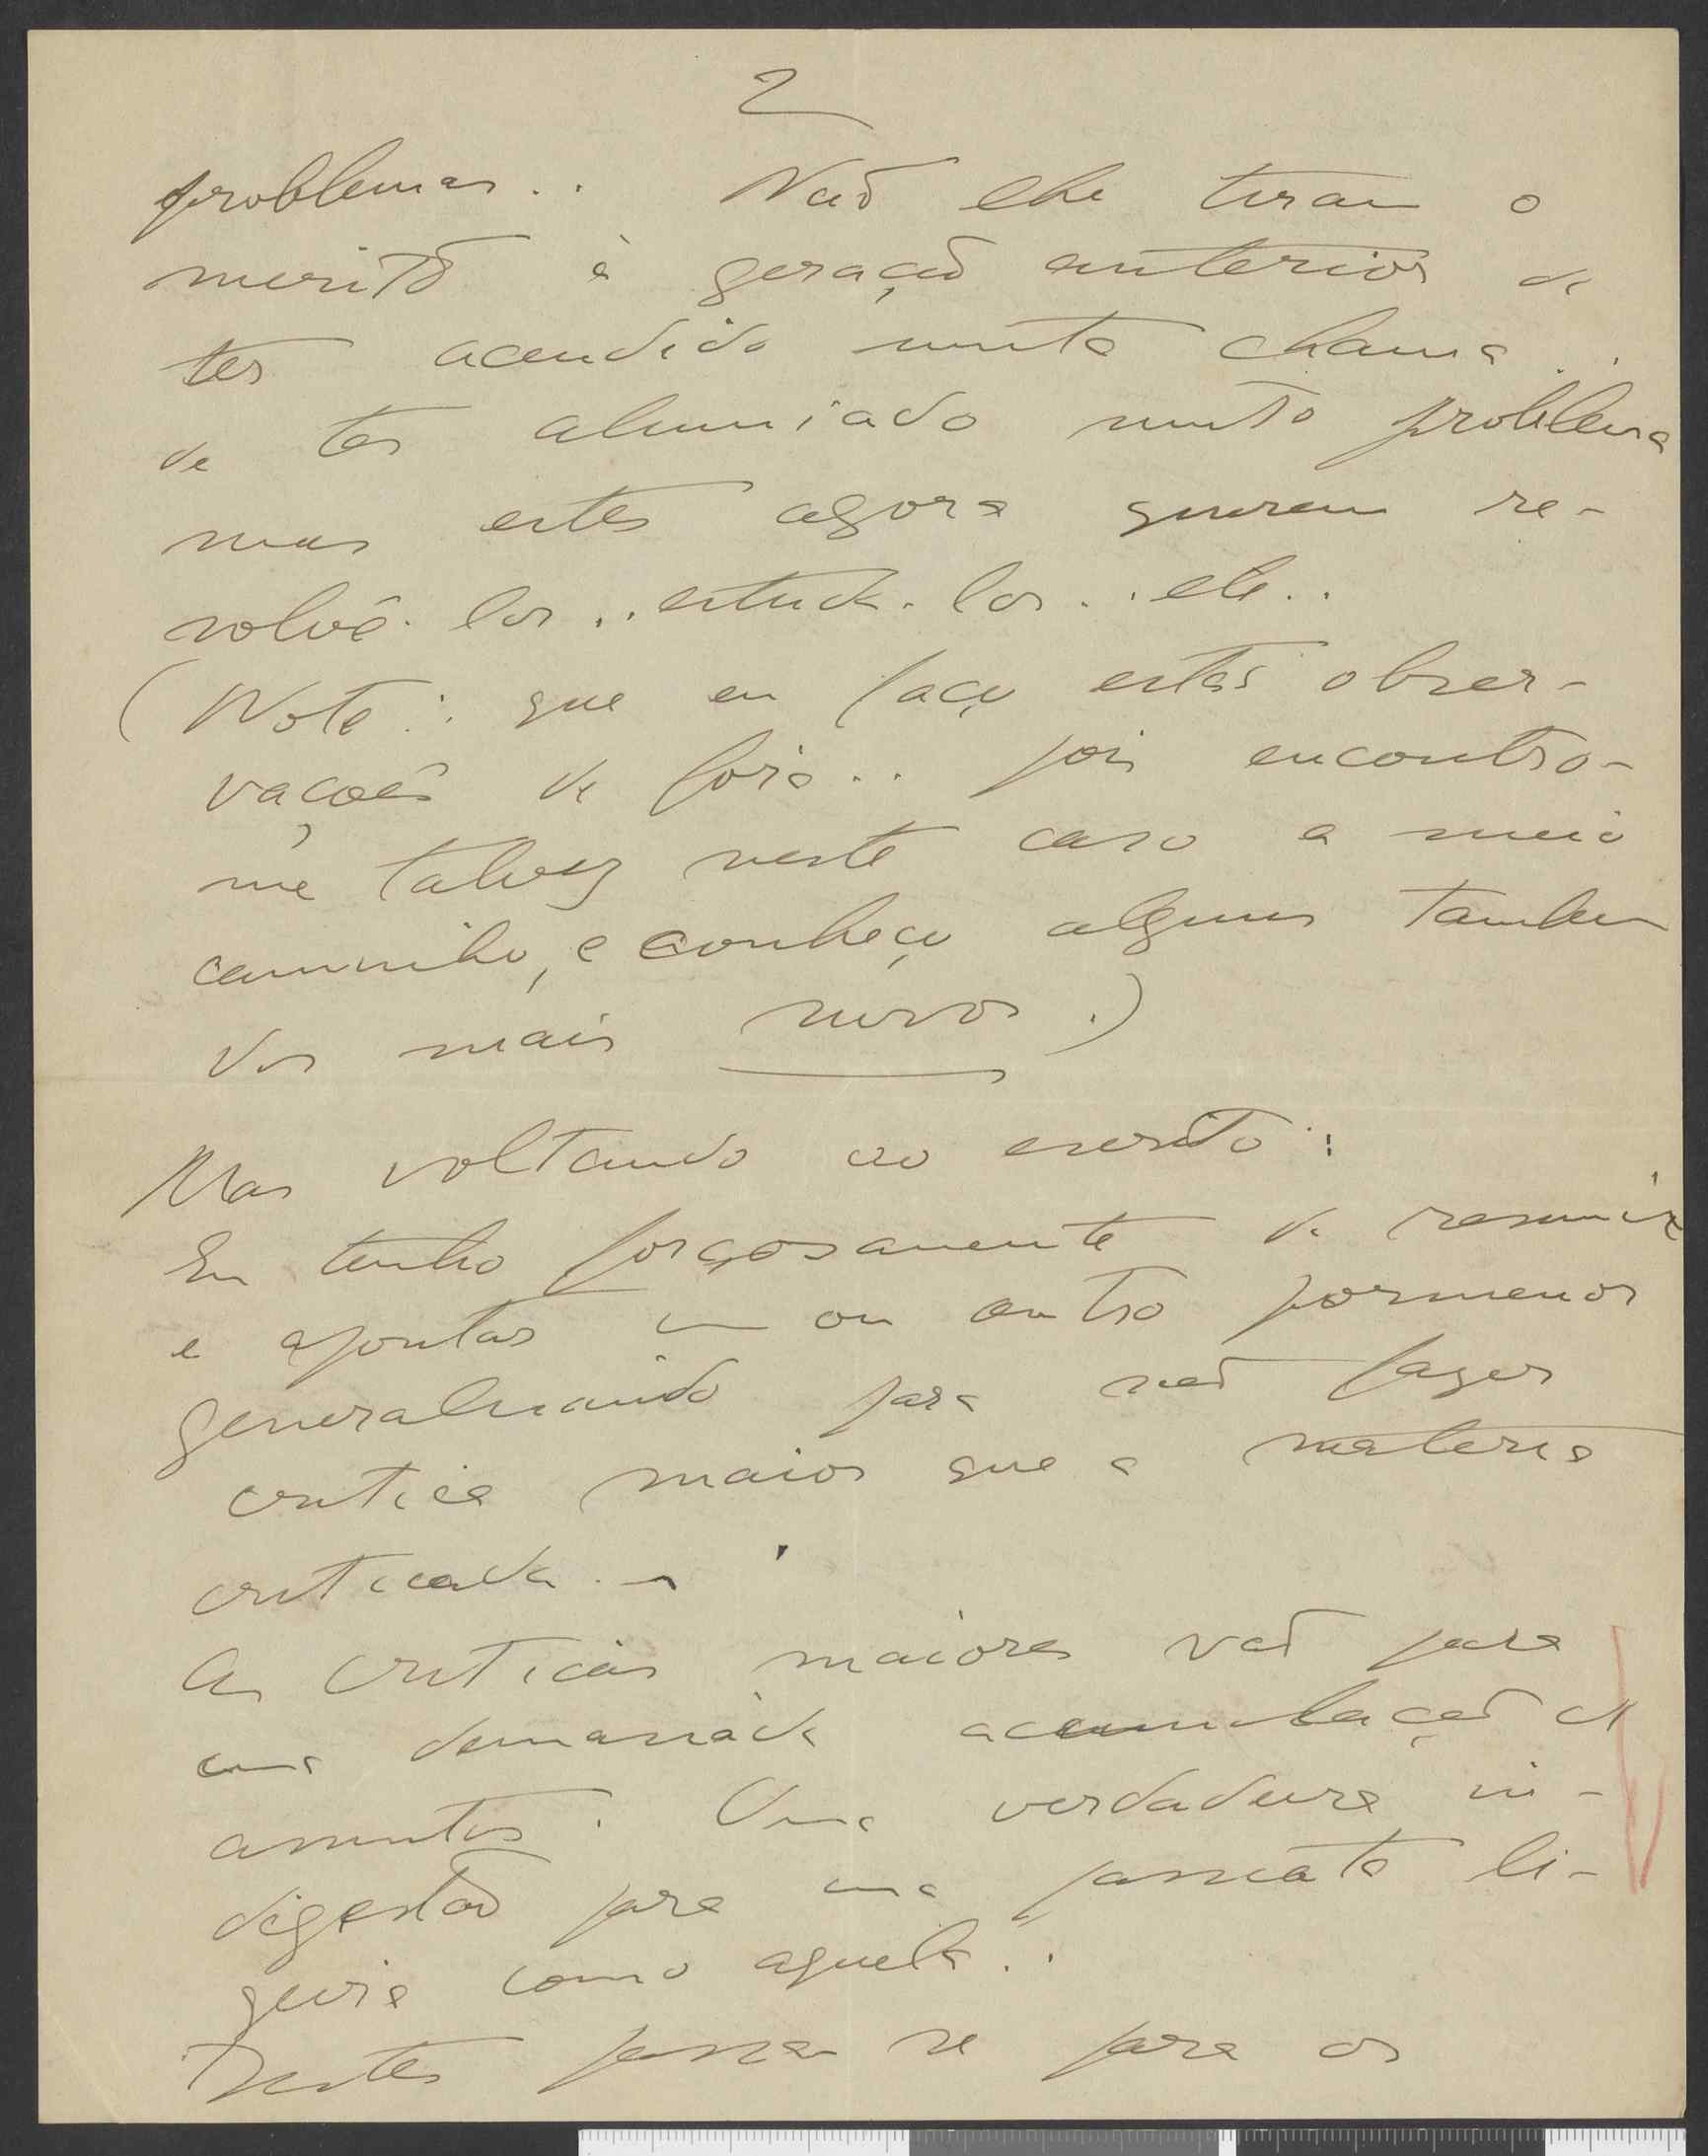 2
problemas.. Não lhe tiram o
merito à geração anterior de
ter acendido muita chama..
de ter alumiado muito problema
mas estes agora querem re-
solvê-los.. estuda-los... etc..
(Note: que eu faço estas obser-
vações de fora.. pois encontro-
me talvez neste caso a meio
caminho, e conheço alguns tambem
dos mais novos.)
Mas voltando ao escrito:
Eu tenho forçosamente de resumir
e apontar um ou outro pormenor
generalisando para não fazer
critica maior que a materia
criticada.-
As criticas maiores vão para
uma demasiada acumulação de
assuntos. Uma verdadeira in-
digestão para uma passeata li-
geira como aquela..
Destes passa-se para os